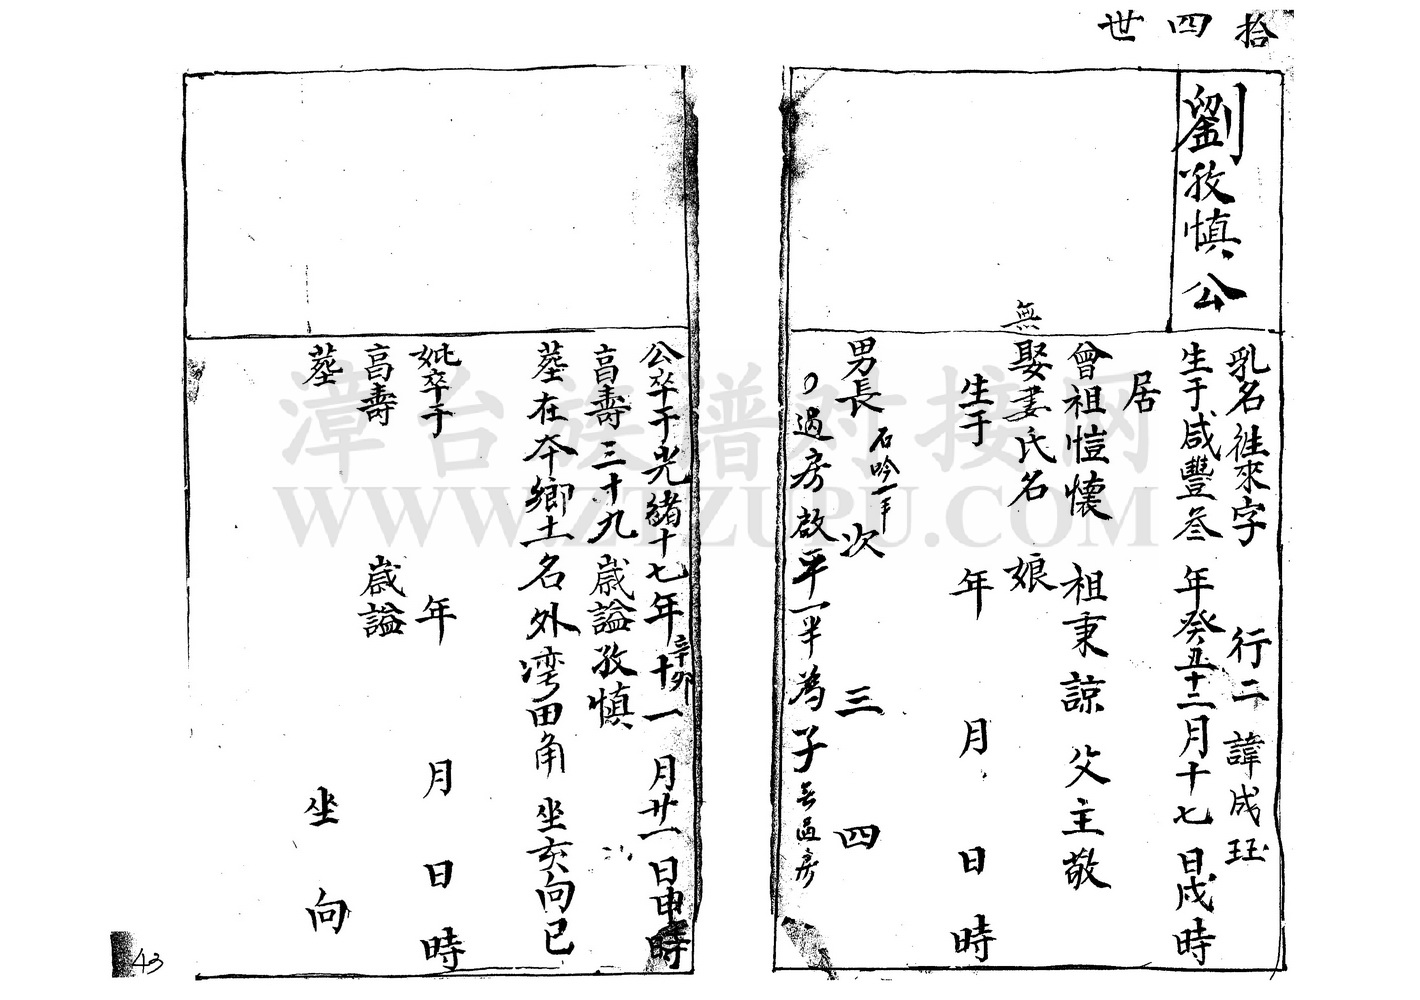 拾四世
劉孜慎公
乳名徃來字 行二 諱成玨
生于咸豐叁年癸丑十二月十七日戌時
居
曾祖愷懷 祖秉諒 父主敬
無娶妻氏名 娘
生于 年 月 日 時
男長 石吟一半 次 三 四
過房啟平一半為子 去過房
公卒于光緒十七年辛卯十一月廿一日申時
亯壽三十九歲謚孜慎
墓在本鄉土名外湾田角 坐亥向巳
妣卒于 年 月 日 時
亯壽 歲謚
墓 坐 向
43
漳台族谱对接网
WWW.ZTZUPU.COM